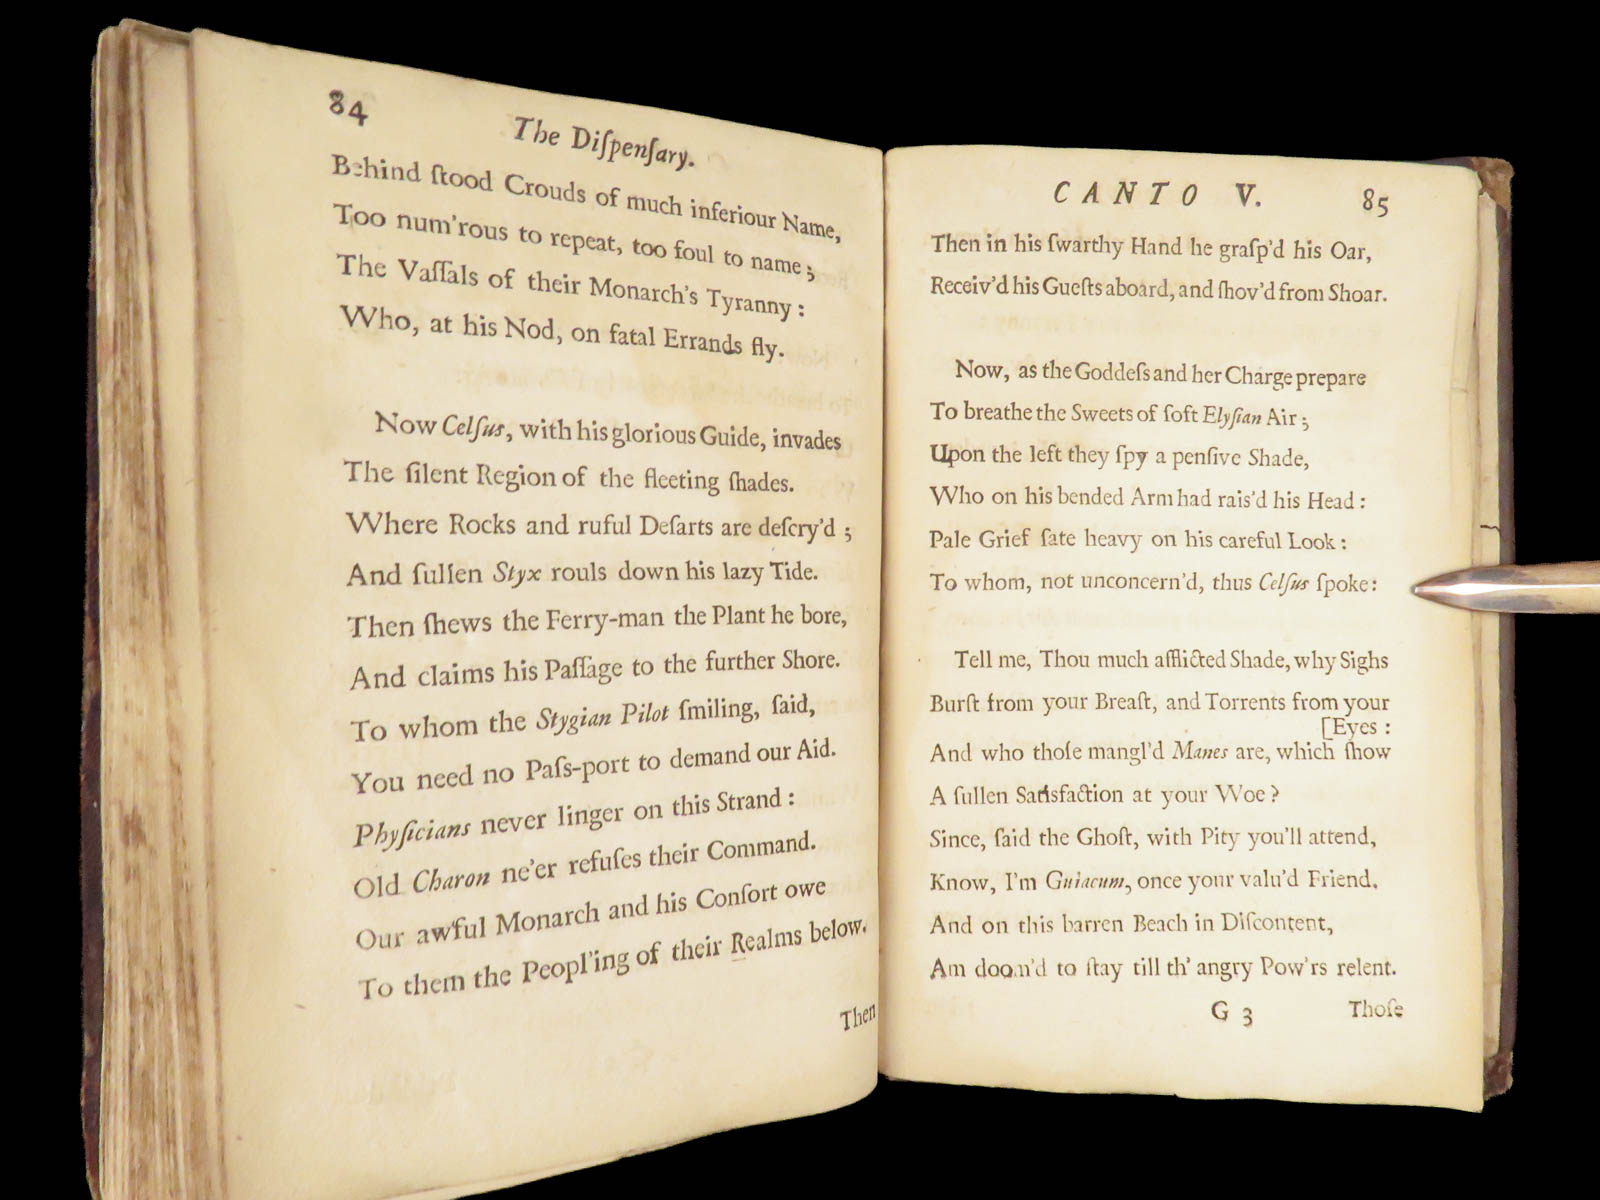 84
The Diſpenſary.
Behind ſtood Crouds of much inferiour Name,
Too num'rous to repeat, too foul to name;
The Vaſſals of their Monarch's Tyranny:
Who, at his Nod, on fatal Errands fly.
Now Celſus, with his glorious Guide, invades
The ſilent Region of the fleeting ſhades.
Where Rocks and ruful Deſarts are deſcry'd;
And ſullen Styx rouls down his lazy Tide.
Then ſhews the Ferry-man the Plant he bore,
And claims his Paſſage to the further Shore.
To whom the Stygian Pilot ſmiling, ſaid,
You need no Paſs-port to demand our Aid.
Phyſicians never linger on this Strand:
Old Charon ne'er refuſes their Command.
Our awful Monarch and his Conſort owe
To them the Peopl'ing of their Realms below.
Then
CANTO V. 85
Then in his ſwarthy Hand he graſp'd his Oar,
Receiv'd his Gueſts aboard, and ſhov'd from Shoar.
Now, as the Goddeſs and her Charge prepare
To breathe the Sweets of ſoft Elyſian Air;
Upon the left they ſpy a penſive Shade,
Who on his bended Arm had rais'd his Head:
Pale Grief ſate heavy on his careful Look:
To whom, not unconcern'd, thus Celſus ſpoke:
Tell me, Thou much afflicted Shade, why Sighs
Burſt from your Breaſt, and Torrents from your
[Eyes:
And who thoſe mangl'd Manes are, which ſhow
A ſullen Satisfaction at your Woe?
Since, ſaid the Ghoſt, with Pity you'll attend,
Know, I'm Guiacum, once your valu'd Friend.
And on this barren Beach in Diſcontent,
Am doom'd to ſtay till th' angry Pow'rs relent.
G 3 Thoſe